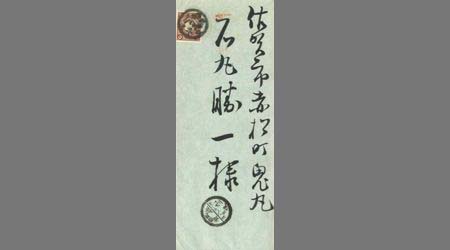 佐賀市赤松町鬼丸
石丸勝一様